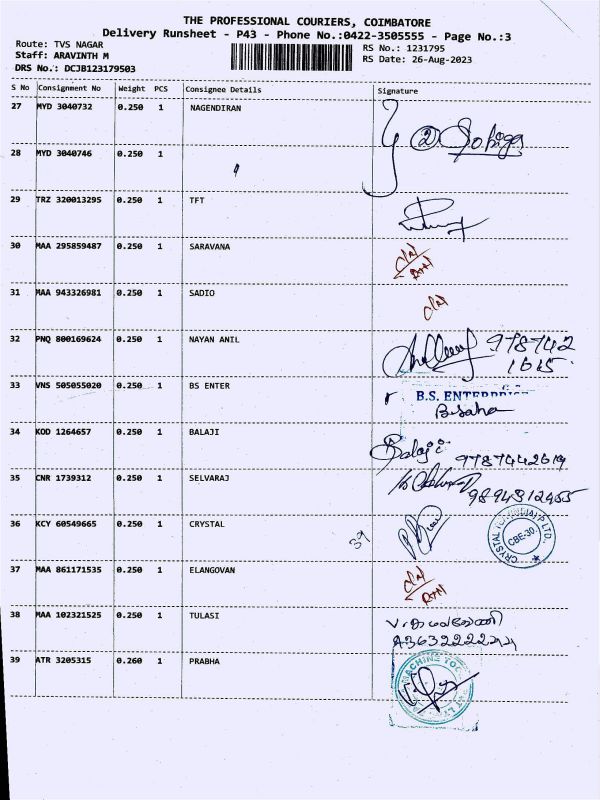 THE PROFESSIONAL COURIERS, COIMBATORE
Delivery Runsheet - P43 - Phone No.:0422-3505555 - Page No.:3
Route: TVS NAGAR
RS No.: 1231795
Staff: ARAVINTH M
RS Date: 26-Aug-2023
DRS No.: DCJB123179503
S No Consignment No Weight PCS Consignee Details Signature
27 MYD 3040732 0.250 1 NAGENDIRAN
28 MYD 3040746 0.250 1
29 TRZ 320013295 0.250 1 TFT
30 MAA 295859487 0.250 1 SARAVANA
31 MAA 943326981 0.250 1 SADIO
32 PNQ 800169624 0.250 1 NAYAN ANIL 978742
1615
33 VNS 505055020 0.250 1 BS ENTER B.S. ENTERPRISE
34 KOD 1264657 0.250 1 BALAJI Balaji
9787442619
35 CNR 1739312 0.250 1 SELVARAJ
9894812455
36 KCY 60549665 0.250 1 CRYSTAL 39 CBE-30.
37 MAA 861171535 0.250 1 ELANGOVAN
38 MAA 102321525 0.250 1 TULASI
39 ATR 3205315 0.260 1 PRABHA MACHINE